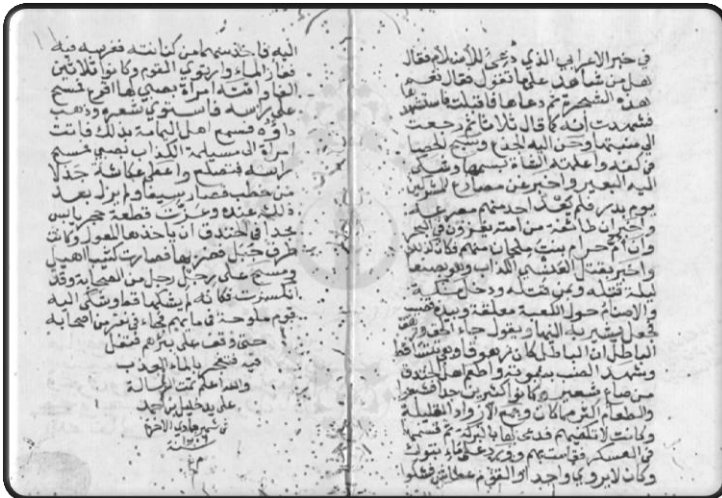 في خبر الاعرابي الذي دعي للاسلام فقال
هل من شاهد على ما تقول فقال نعم
هذه الشجرة ثم دعاها فاقبلت فاستشهدها
فشهدت انه كما قال ثلاثا ثم رجعت
الى منبتها وحن اليه الجذع وسبح الحصا
في كفه واعلمته الشاة بسمها وشكى
اليه البعير واخبر عن مصارع المشركين
يوم بدر فلم يعد احد منهم مصرعه
واخبر ان طائفة من امته يغزون في البحر
وان ام حرام بنت ملحان منهم فكان كذلك
واخبر بقتل العنسي الكذاب وهو بصنعا
ليلة قتله وبمن قتله ودخل مكة
والاصنام حول الكعبة معلقة وبيده قضيب
فجعل يشير به اليها ويقول جاء الحق وزهق
الباطل ان الباطل كان زهوقا وهي تتساقط
وشهد الضب بنبوته واطعم اهل الخندق
من صاع شعير وكانوا كثيرين جدا فشبعوا
والطعام اكثر مما كان وجمع الازواد القليلة
وكانت لا تكفيهم فدعى لها بالبركة ثم قسمها
في العسكر فقامت بهم وورد على ماء تبوك
وكان لا يروي واحدا والقوم عطاش فشكوا
اليه فاخذ سهما من كنانته فغرسه فيه
ففار الماء وارتوي القوم وكانوا ثلاثين
الفا واتته امراة بصبي لها اقرع فمسح
على راسه فاستوي شعره وذهب
داؤه فسمع اهل اليمامة بذلك فاتت
امراة الى مسيلمة الكذاب بصبي فمسح
راسه فتصلع واعطى عكاشة جذلا
من حطب فصار سيفا ولم يزل بعد
ذلك عنده وعزت قطعة حجر يابس
جدا في الخندق ان ياخذها المعول وكانت
طرف جبل فضربها فصارت كثيبا اهيل
ومسح على رجل رجل من الصحابة وقد
انكسرت فكانه لم يشكها قط وشكى اليه
قوم ملوحة في مائهم فجاء في نفر من اصحابه
حتى وقف على بئرهم فتفل
فيه فتفجر بالماء العذب
والله اعلم تمت الرسالة
على يد خليل بن احمد
في شهر جمادي الاخرة
سنة